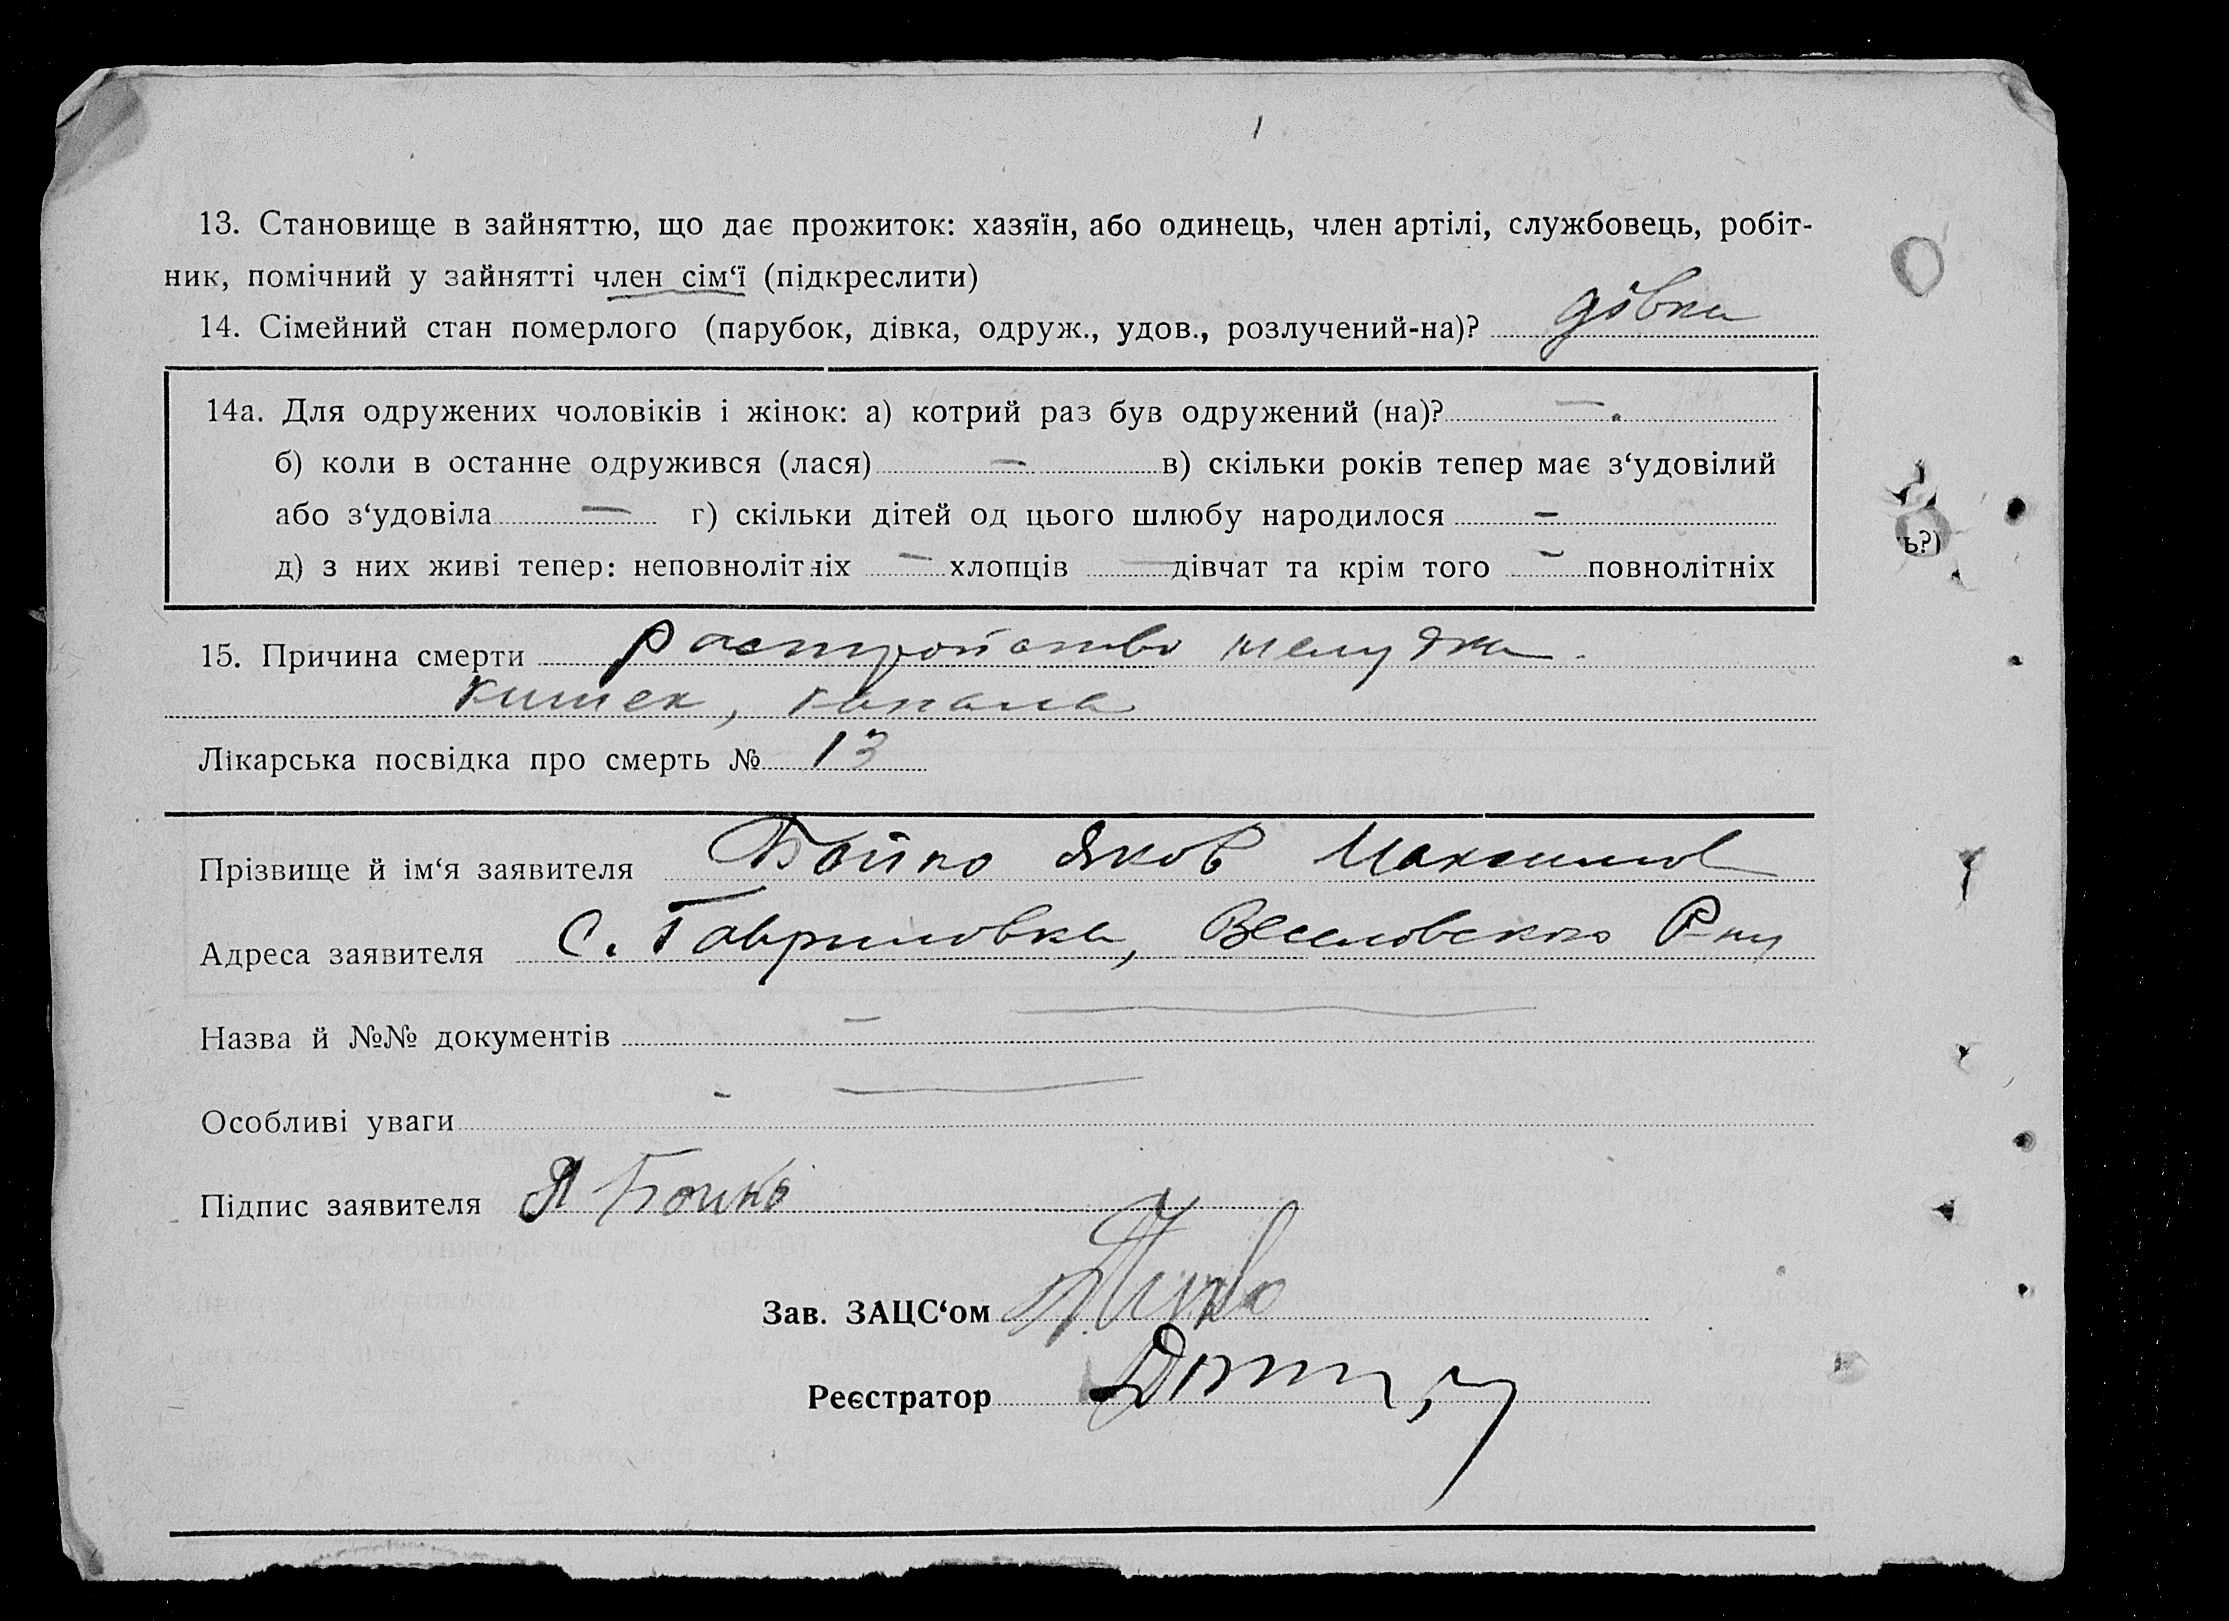 13. Становище в зайняттю, що дає прожиток: хазяїн, або одинець, член артілі, службовець, робіт-
ник, помічний у зайнятті член сім‘ї (підкреслити)
14. Сімейний стан померлого (парубок, дівка, одруж., удов., розлучений-на)? дівка
14а. Для одружених чоловіків і жінок: а) котрий раз був одружений (на)? —
б) коли в останне одружився (лася) — в) скільки років тепер має з‘удовілий
або з‘удовіла — г) скільки дітей од цього шлюбу народилося —
д) з них живі тепер: неповнолітніх — хлопців — дівчат та крім того — повнолітніх
ь?)
15. Причина смерти Растройство желудка
кишек, канала
Лікарська посвідка про смерть № 13
Прізвище й ім‘я заявителя Бойко Яков Максимов
Адреса заявителя С. Гавриловка, Веселовского Р-ну
Назва й №№ документів —
Особливі уваги —
Підпис заявителя Я Бойко
Зав. ЗАЦС‘ом
Реєстратор